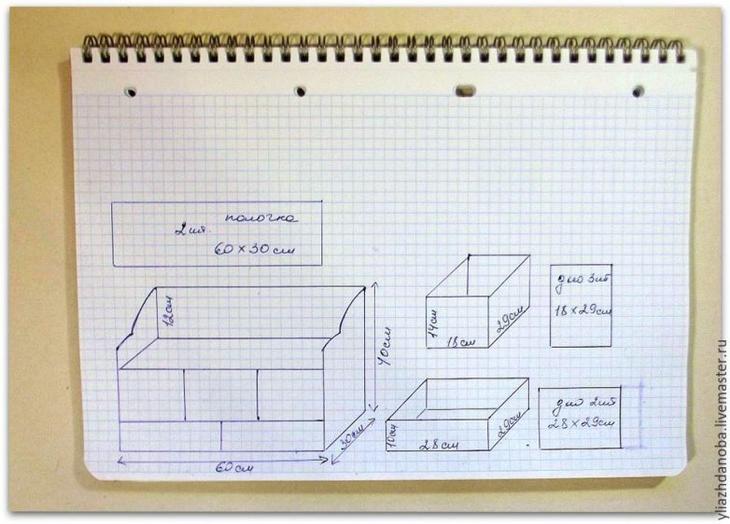 полочка
2шт.
60 x 30 см
12см
40см
30см
60см
14см
18см
29см
дно 3шт
18 x 29см
10см
28см
29см
дно 2шт
28 x 29см
yliazhdanoba.livemaster.ru